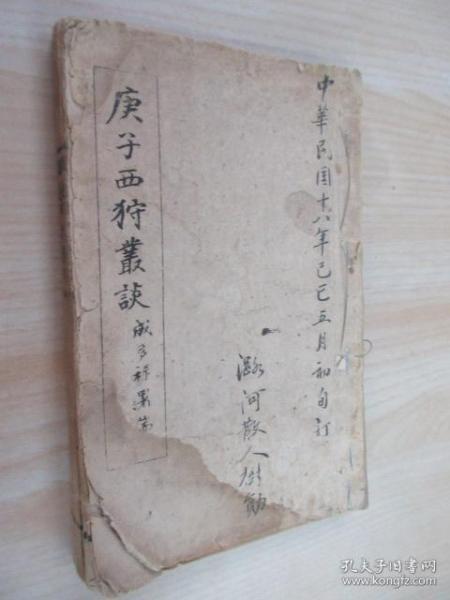 中華民国十八年己巳五月初旬訂
潞河散人
庚子西狩叢談
成多祿署耑
孔夫子旧书网
www.kongfz.com